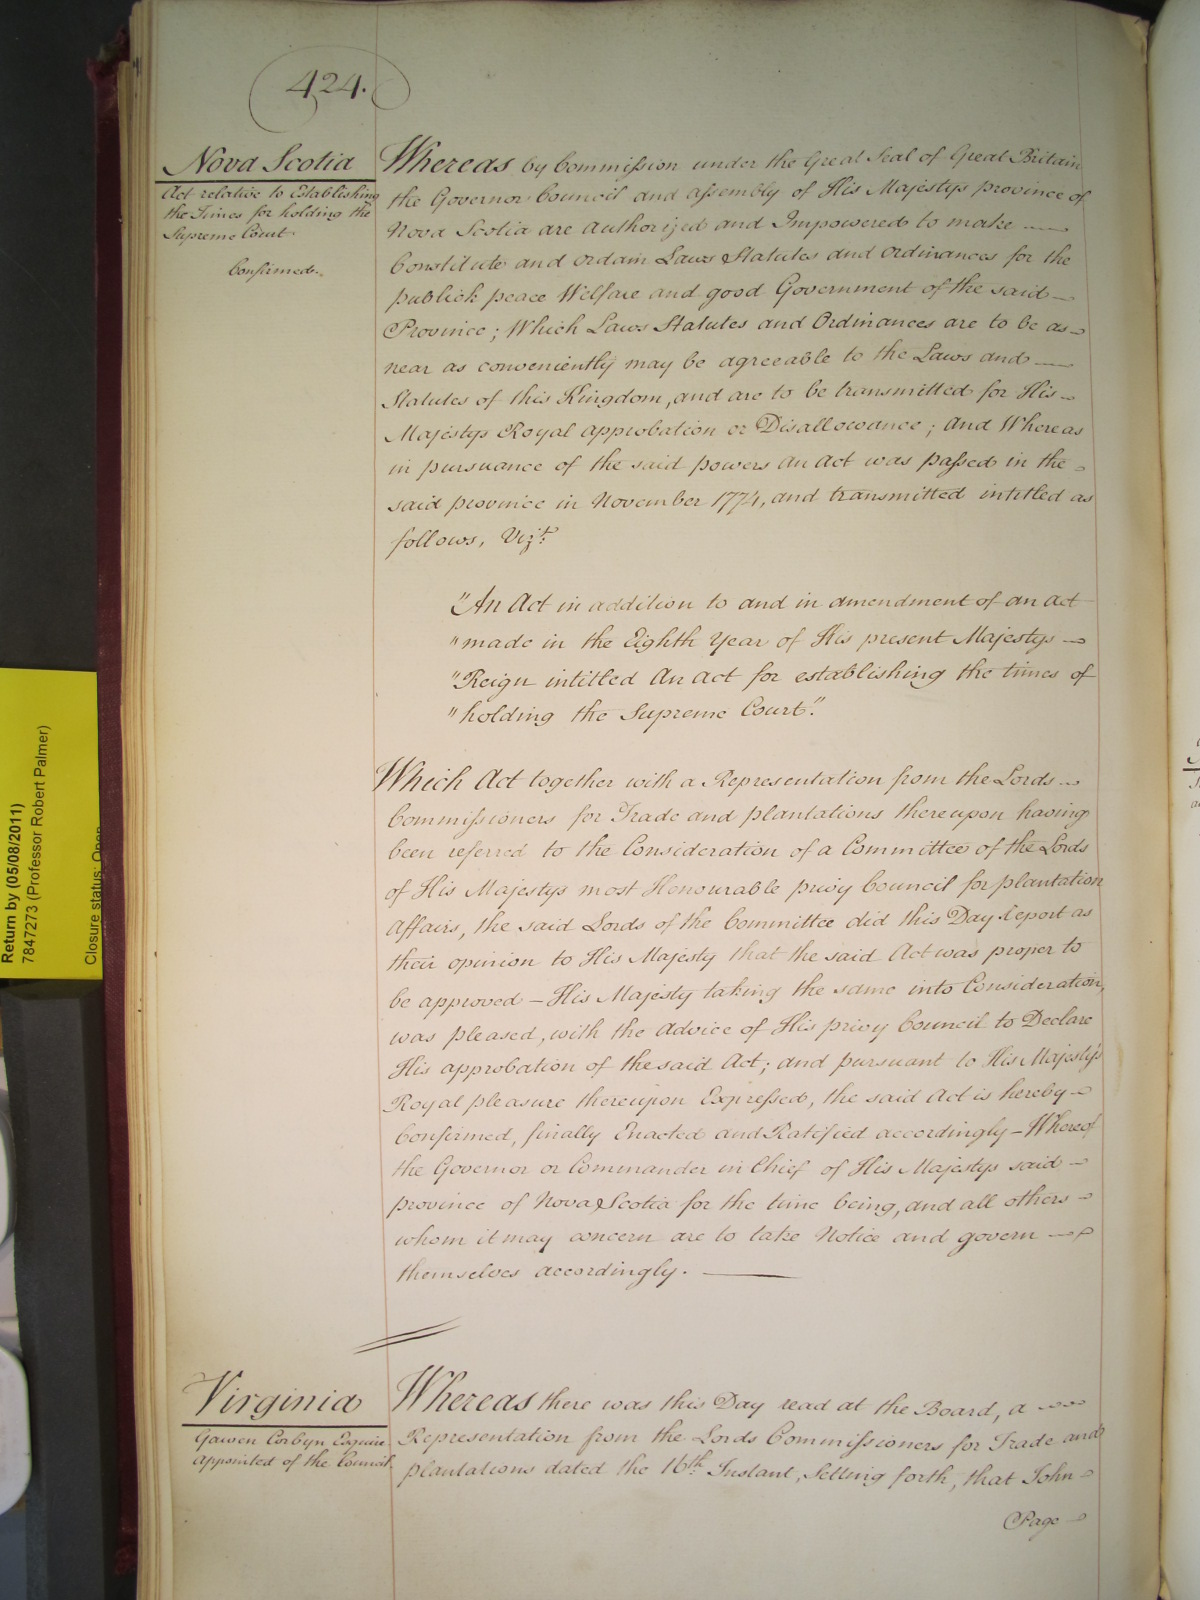 424.
Nova Scotia
Act relative to Establishing
the Times for holding the
Supreme Court
Confirmed.
Whereas by Commission under the Great Seal of Great Britain
the Governor Council and assembly of His Majestys province of
Nova Scotia are Authorized and Impowered to make
Constitute and ordain Laws Statutes and Ordinances for the
publick peace Welfare and good Government of the said
Province; Which Laws Statutes and Ordinances are to be as
near as conveniently may be agreeable to the Laws and
Statutes of this Kingdom, and are to be transmitted for His
Majestys Royal approbation or Disallowance; And Whereas
in pursuance of the said powers An Act was passed in the
said province in November 1774, and transmitted intitled as
follows, Vizt.
"An Act in addition to and in amendment of an Act
"made in the Eighth Year of His present Majestys
"Reign intitled An Act for establishing the times of
"holding the Supreme Court."
Which Act together with a Representation from the Lords
Commissioners for Trade and plantations thereupon having
been referred to the Consideration of a Committee of the Lords
of His Majestys most Honourable privy Council for plantation
Affairs, the said Lords of the Committee did this Day report as
their opinion to His Majesty that the said Act was proper to
be approved – His Majesty taking the same into Consideration,
was pleased, with the Advice of His privy Council to Declare
His approbation of the said Act; and pursuant to His Majesty's
Royal pleasure thereupon Expressed, the said Act is hereby
Confirmed, finally Enacted and Ratified accordingly – Whereof
the Governor or Commander in Chief of His Majestys said
province of Nova Scotia for the time being, and all others
whom it may concern are to take Notice and govern
themselves accordingly.
Virginia
Gawen Corbyn Esquire
Appointed of the Council
Whereas there was this Day read at the Board, a
Representation from the Lords Commissioners for Trade and
plantations dated the 16th Instant, Setting forth, that John
Page
Return by (05/08/2011)
7847273 (Professor Robert Palmer)
Closure status: Open